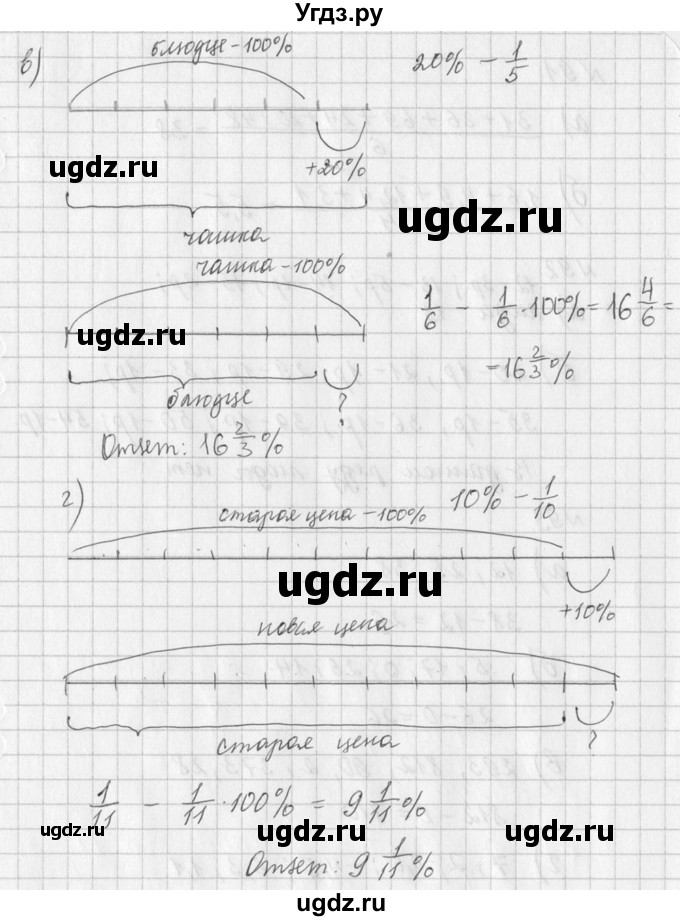 Угдз.ру
в) блюдце - 100% 20% - 1/5
+20%
ugdz.ru
ugdz.ru
чашка
чашка - 100%
ugdz.ru
1/6 - 1/6 · 100% = 16 4/6 =
= 16 2/3 %
блюдце ?
Ответ: 16 2/3 %
г) старая цена - 100% 10% - 1/10
ugdz.ru
+10%
новая цена
старая цена ?
1/11 - 1/11 · 100% = 9 1/11 %
ugdz.ru ugdz.ru ugdz.ru
Ответ: 9 1/11 %
ugdz.ru